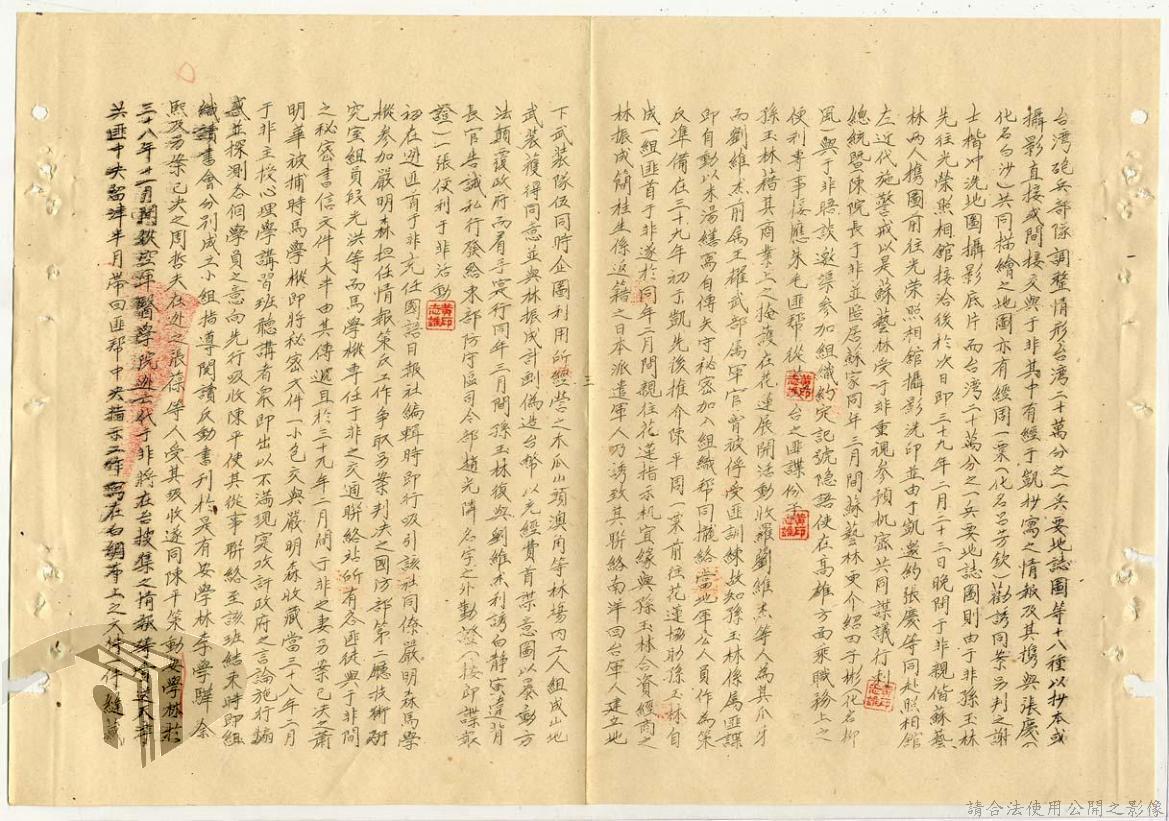 台湾砲兵部隊調整情形台湾二十萬分之一兵要地誌圖等十八種以抄本或
攝影直接或間接交與于非其中有經于凱抄寫之情報及其携與張慶(
化名白沙)共同描繪之地圖亦有經周一粟(化名呂方欽)勸誘同案另判之謝
士楷冲洗地圖攝影底片而台湾二十萬分之一兵要地誌圖則由于非孫玉林
先往光榮照相館接洽後於次日即三十九年二月二十三日晚間于非親偕蘇藝
林兩人携圖前往光荣照相館攝影洗印並由于凱邀約張慶等同赴照相館
左近代施警戒以是蘇藝林受于非重視參預机密共同謀議行刺
總統暨陳院長于非並隱居蘇家同年三月間蘇藝林更介紹田子彬化名柳
風與于非晤談邀渠參加組織約定記號隱語使在高雄方面乘職務上之
便利事事接應朱毛匪帮從台之匪諜份子
孫玉林藉其商業上之掩護在花蓮展開活動收羅劉維杰等人為其爪牙
而劉維杰前屬王耀武部屬軍官曾被俘受匪訓練故知孫玉林係屬匪諜
即自動以米湯繕寫自傳矢守秘密加入組織帮同攏絡當地軍公人員作為策
反準備在三十九年初于凱先後推介陳平周一粟前往花蓮協助孫玉林自
成一組匪首于非遂於同年二月間親往花蓮指示机宜緣與孫玉林合資經商之
林振成簡桂生係返籍之日本派遣軍人乃誘致其聯絡南洋回台軍人建立地
三
下武装隊伍同時企圖利用所經营之木瓜山頭澳角等林場内工人組成山地
武装獲得同意並與林振成計劃偽造台幣以充經費首謀意圖以暴動方
法顛覆政府而着手実行同年三月間孫玉林復與劉維杰利誘白靜寅違背
長官告誡私行發給東部防守區司令部趙光隣名字之外勤證(按印諜報
證)一張便利于非活動
初在逃匪首于非充任國語日報社編輯時即行吸引該社同僚嚴明森馬學
樅參加嚴明森担任情報策反工作争取另案判决之國防部第二廳技術研
究室組員段光洪等而馬學樅專任于非之交通聯絡站所有各匪徒與于非間
之秘密書信文件大半由其傳遞且於三十九年二月間于非之妻另案已决蕭
明華被捕時馬學樅即將秘密文件一小包交與嚴明森收藏當三十八年二月
于非主授心理學講習班聽講者衆即出以不滿現実攻訐政府之言論施行煽
惑並探測各個學員之意向先行吸收陳平使其從事聯絡至該班結束時即組
織讀書會分別成立小組指導閱讀反動書刊於是有安學林李學驊余
熙及另案已决之周哲夫在逃之張保等人受其吸收遂同陳平策動安學林於
三十八年十一月間
共匪中央留津半月帶回匪帮中央指示工作寫在白綢布上之文件一件縫藏
黄印
志誰
請合法使用公開之影像